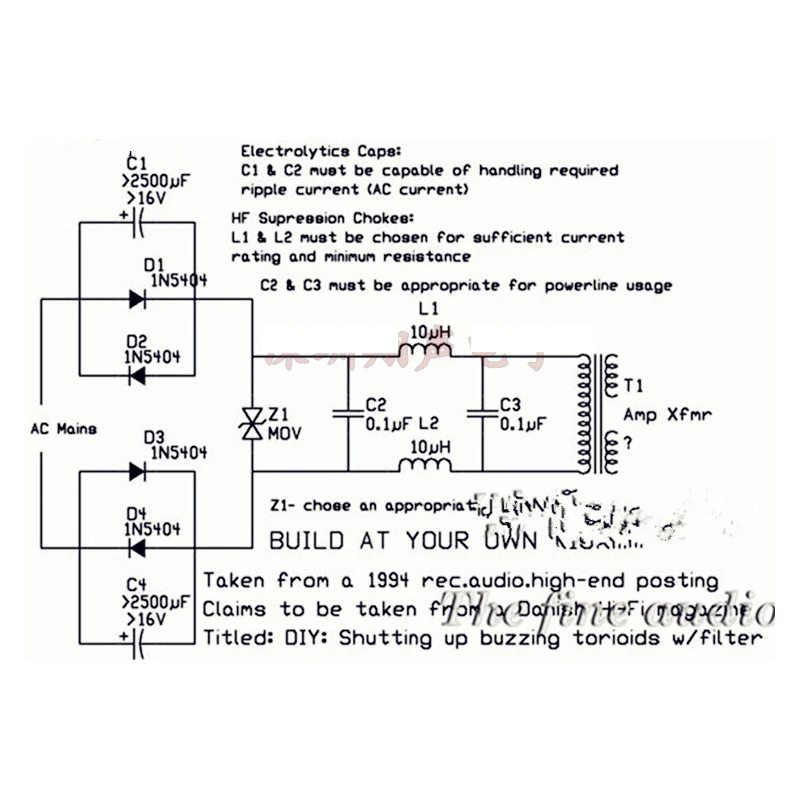 C1
>2500µF
>16V
+
Electrolytics Caps:
C1 & C2 must be capable of handling required
ripple current (AC current)
HF Supression Chokes:
L1 & L2 must be chosen for sufficient current
rating and minimum resistance
C2 & C3 must be appropriate for powerline usage
D1
1N5404
D2
1N5404
L1
10µH
AC Mains
Z1
MOV
C2
0.1µF
L2
10µH
C3
0.1µF
T1
Amp Xfmr
?
D3
1N5404
D4
1N5404
Z1- chose an appropriate
BUILD AT YOUR OWN
C4
>2500µF
>16V
+
Taken from a 1994 rec.audio.high-end posting
Claims to be taken from a Danish Hi-Fi magazine
Titled: DIY: Shutting up buzzing torioids w/filter
The fine audio